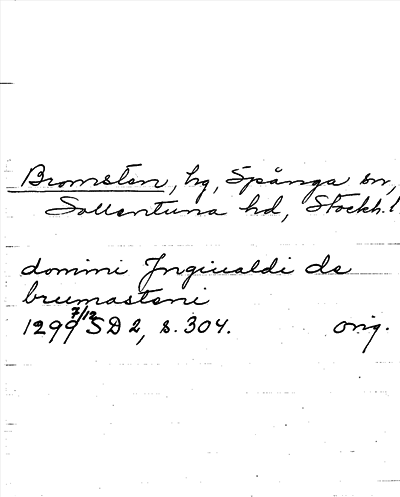 Bromsten, hg, Spånga sn,
Sollentuna hd, Stockh. l
domini Jngiualdi de
brumasteni
1299 7/12 SD 2, s. 304. orig.